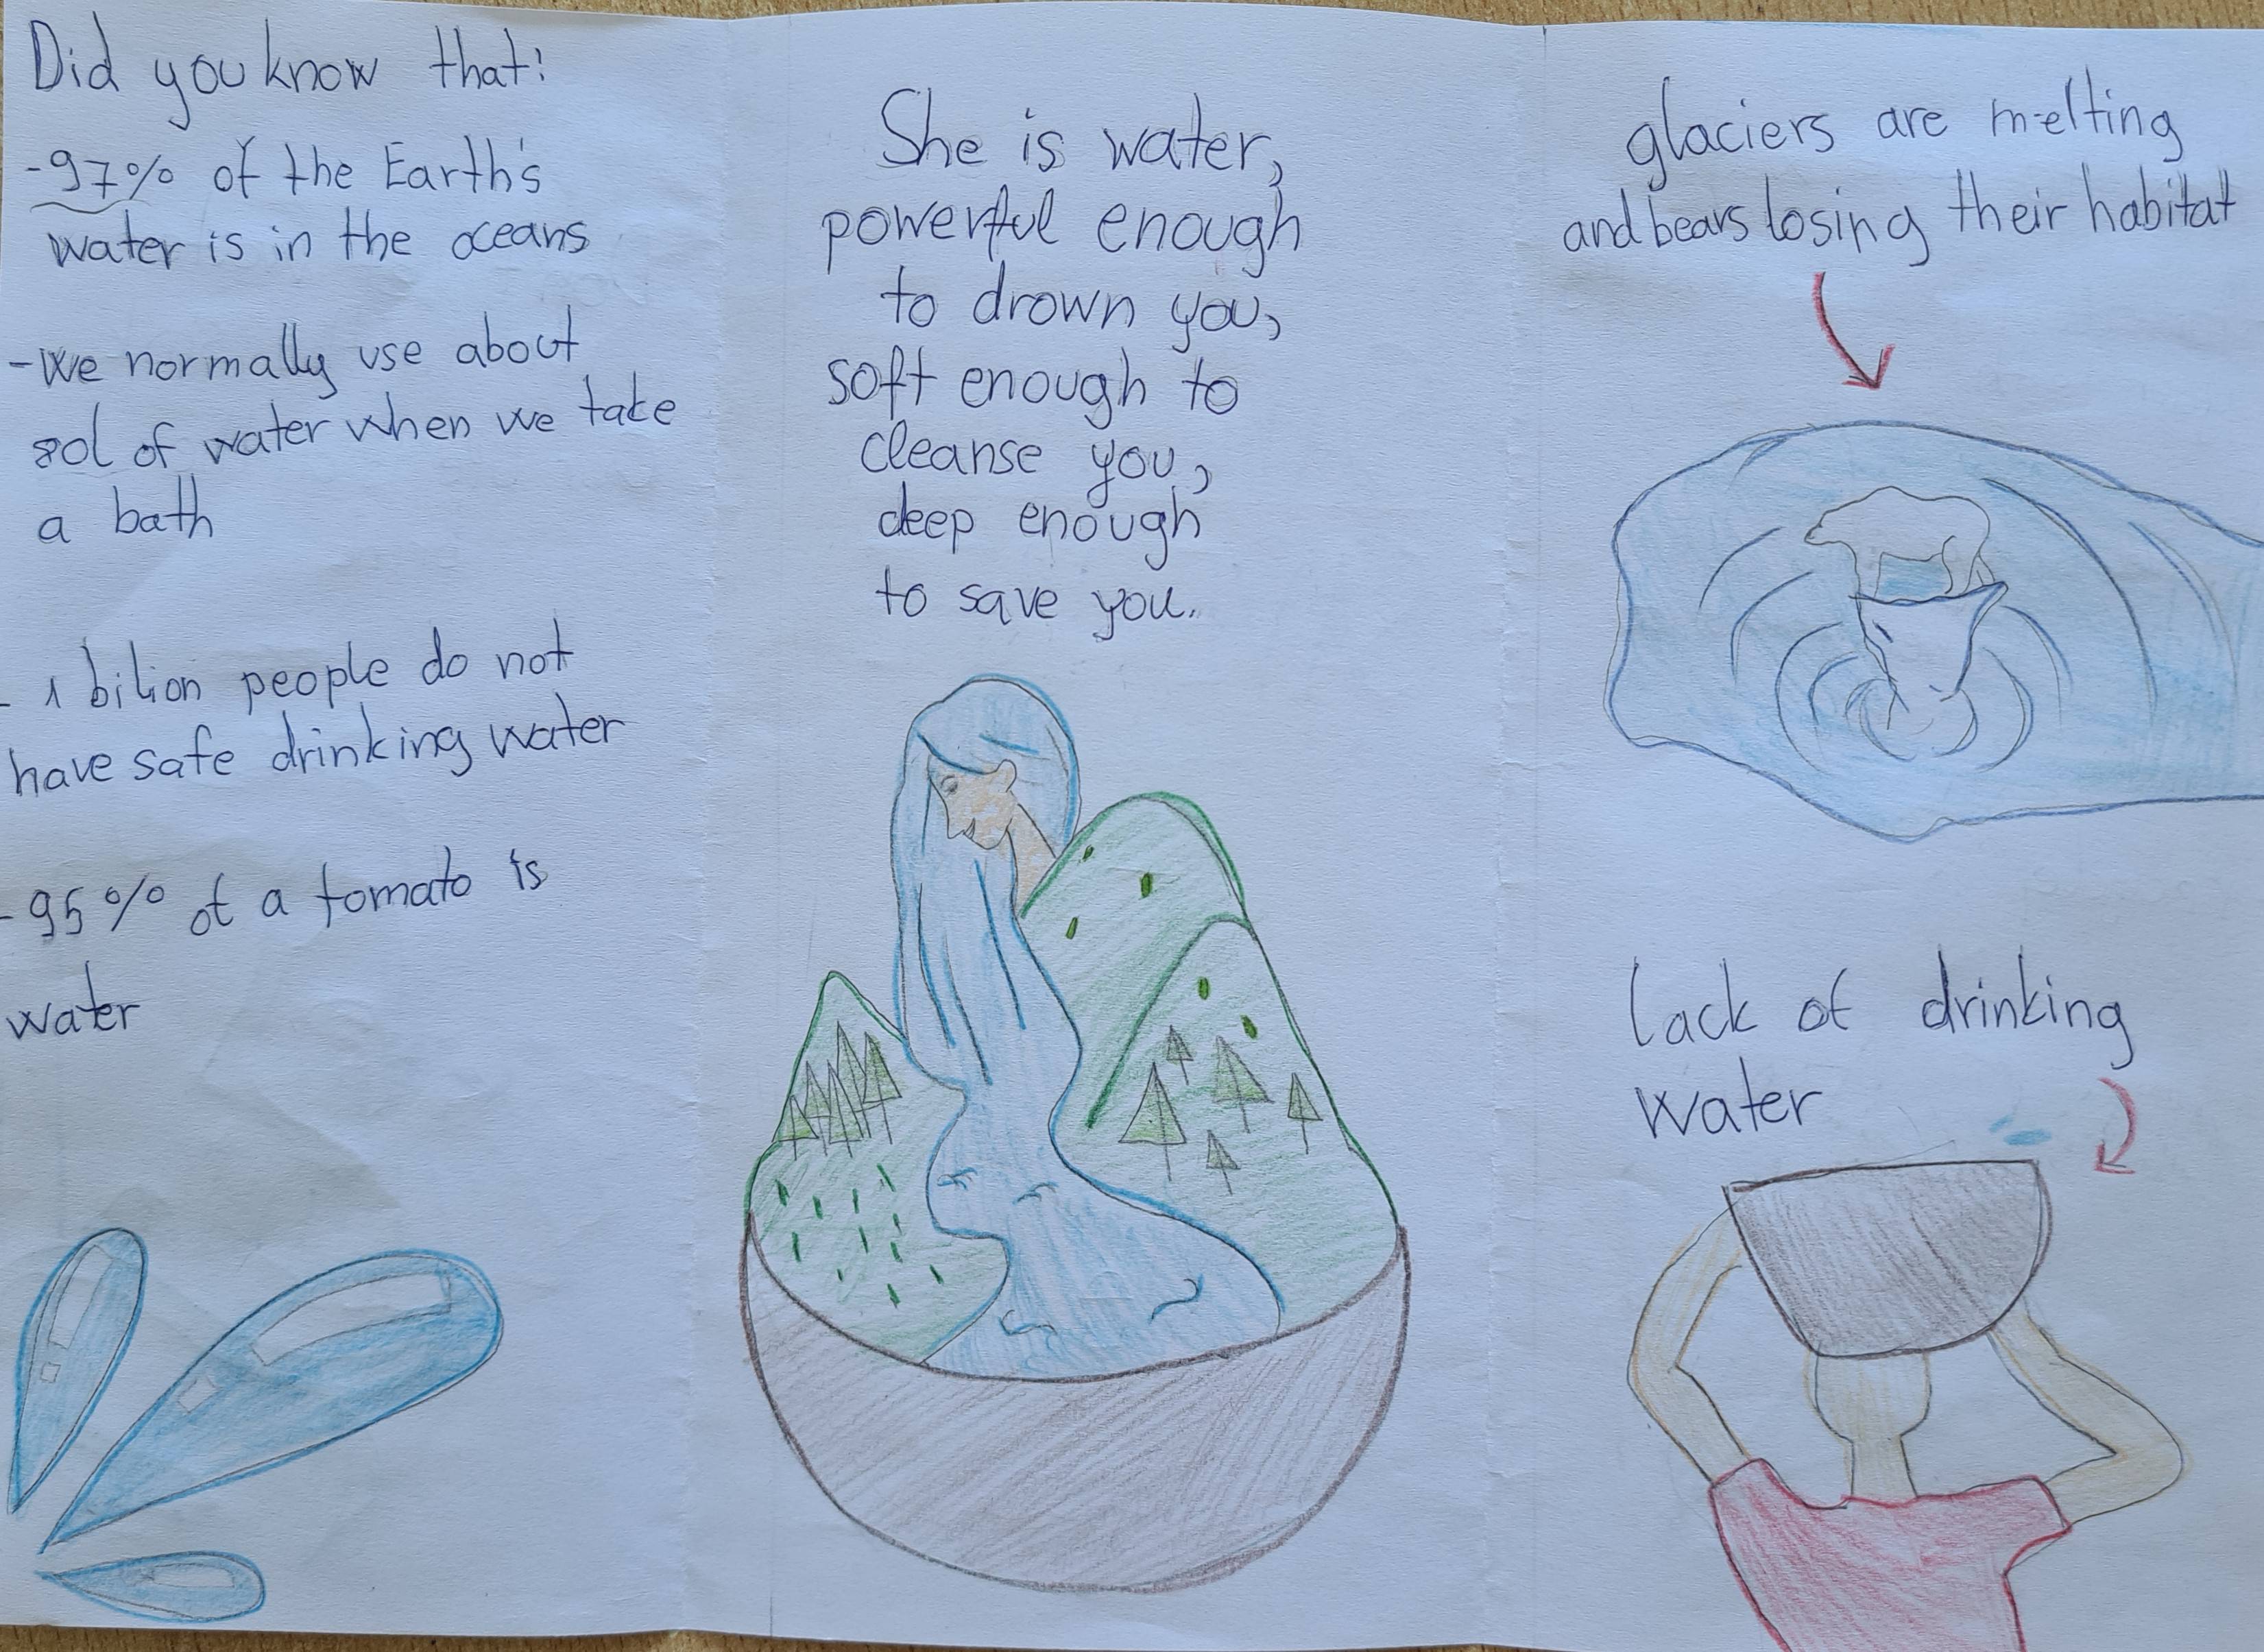 Did you know that:
-97% of the Earth's
water is in the oceans
-We normally use about
80l of water when we take
a bath
- 1 bilion people do not
have safe drinking water
-95% of a tomato is
water
She is water,
powerful enough
to drown you,
soft enough to
cleanse you,
deep enough
to save you.
glaciers are melting
and bears losing their habitat
lack of drinking
water